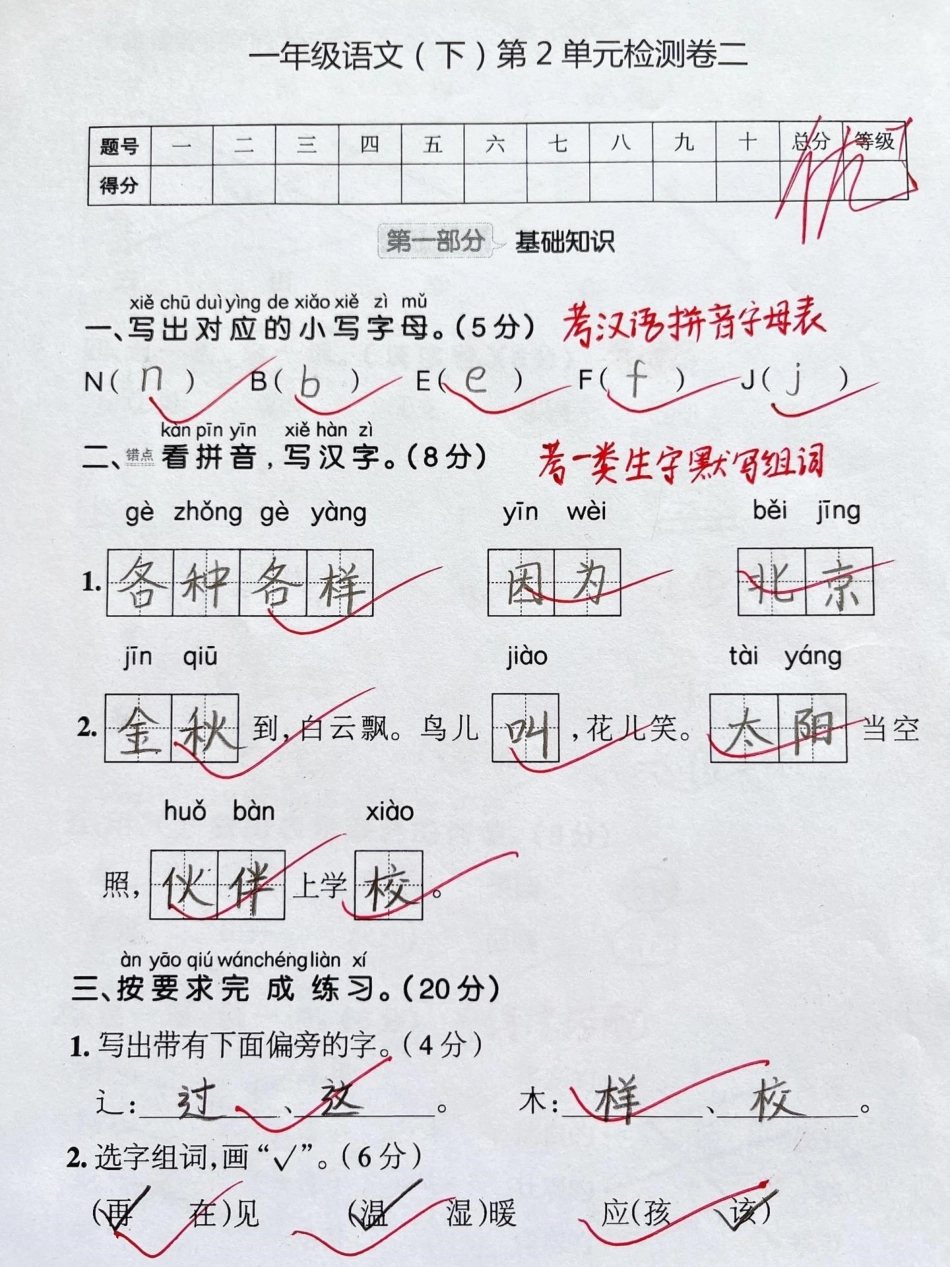 一年级语文(下)第2单元检测卷二
题号 一 二 三 四 五 六 七 八 九 十 总分 等级
得分 优
第一部分 基础知识
xiě chū duì yìng de xiǎo xiě zì mǔ
一、写出对应的小写字母。(5分) 考汉语拼音字母表
N( n ) B( b ) E( e ) F( f ) J( j )
kàn pīn yīn xiě hàn zì
二、错点 看拼音,写汉字。(8分) 考一类生字默写组词
gè zhǒng gè yàng yīn wèi běi jīng
1. 各种各样 因为 北京
jīn qiū jiào tài yáng
2. 金秋到,白云飘。鸟儿叫,花儿笑。太阳当空
huǒ bàn xiào
照,伙伴上学校。
àn yāo qiú wán chéng liàn xí
三、按要求完成练习。(20分)
1. 写出带有下面偏旁的字。(4分)
辶:过、这。 木:样、校。
2. 选字组词,画“√”。(6分)
(再√ 在)见 (温√ 湿)暖 应(孩 该√)